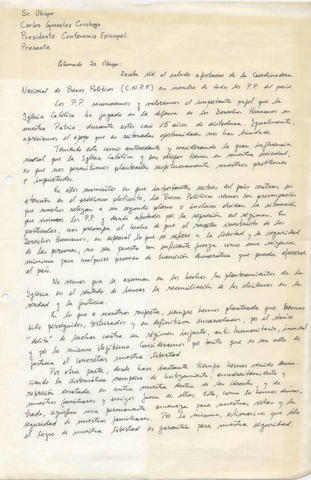 Sr. Obispo
Carlos González Cruchaga
Presidente Conferencia Episcopal
Presente.
Estimado Sr. Obispo:
Reciba Ud. el saludo afectuoso de la Coordinadora
Nacional de Presos Políticos (C.N.P.P.) en nombre de todos los P.P. del país
Los P.P. reconocemos y valoramos el importante papel que la
Iglesia Católica ha jugado en la defensa de los Derechos Humanos en
nuestra Patria, durante estos casi 15 años de dictadura. Igualmente,
apreciamos el apoyo que en reiteradas oportunidades nos han brindado.
Teniendo esto como antecedente y considerando la gran influencia
moral que la Iglesia Católica y sus obispos tienen en nuestra sociedad,
es que nos permitimos plantearles respetuosamente nuestros problemas
e inquietudes.
En estos momentos en que importantes sectores del país centran su
atención en el problema electoral, los Presos Políticos vemos con preocupación
que nuestra
que vivimos los P.P. y demás afectados por la represión del régimen. En
particular, nos preocupa el hecho de que el respeto irrestricto de los
Derechos Humanos, en especial lo que se refiere a la libertad y la seguridad
de las personas, no sea puesto con suficiente fuerza como una exigencia
mínima para cualquier proceso de transición democrática que pueda operarse
el país.
No vemos que se asuman en los hechos los planteamientos de la
Iglesia en el sentido de buscar la reconciliación de los chilenos en la
verdad y la justicia.
En lo que a nosotros respecta, siempre hemos planteado que hemos
sido perseguidos, torturados y en definitiva encarcelados, por el único
"delito" de luchar contra un régimen injusto, anti-humanitario, inmoral
y por lo mismo ilegítimo. Consideramos por tanto que es un acto de
justicia el concretar nuestra libertad.
Por otra parte, desde hace bastante tiempo hemos venido denun-
ciando la sistemática campaña de hostigamiento, amedrentamiento y
represión desatada en contra nuestra dentro de las cárceles, y de
nuestros familiares y amigos fuera de ellas. Esto, como lo hemos demos-
trado, significa una permanente amenaza para nuestras vidas y la
seguridad de nuestros familiares. Por lo mismo, estimamos que sólo
el logro de nuestra libertad es garantía para nuestra seguridad.